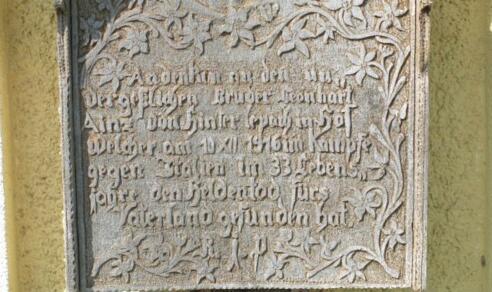 Andenken an den un
vergeßlichen Bruder Leonhart
Ainz von Hinter in Höf
Welcher am 10 XII 1916 im Kampfe
gegen Italien im 33 Lebens
jahre den Heldentod fürs
Vaterland gefunden hat
R. I. P